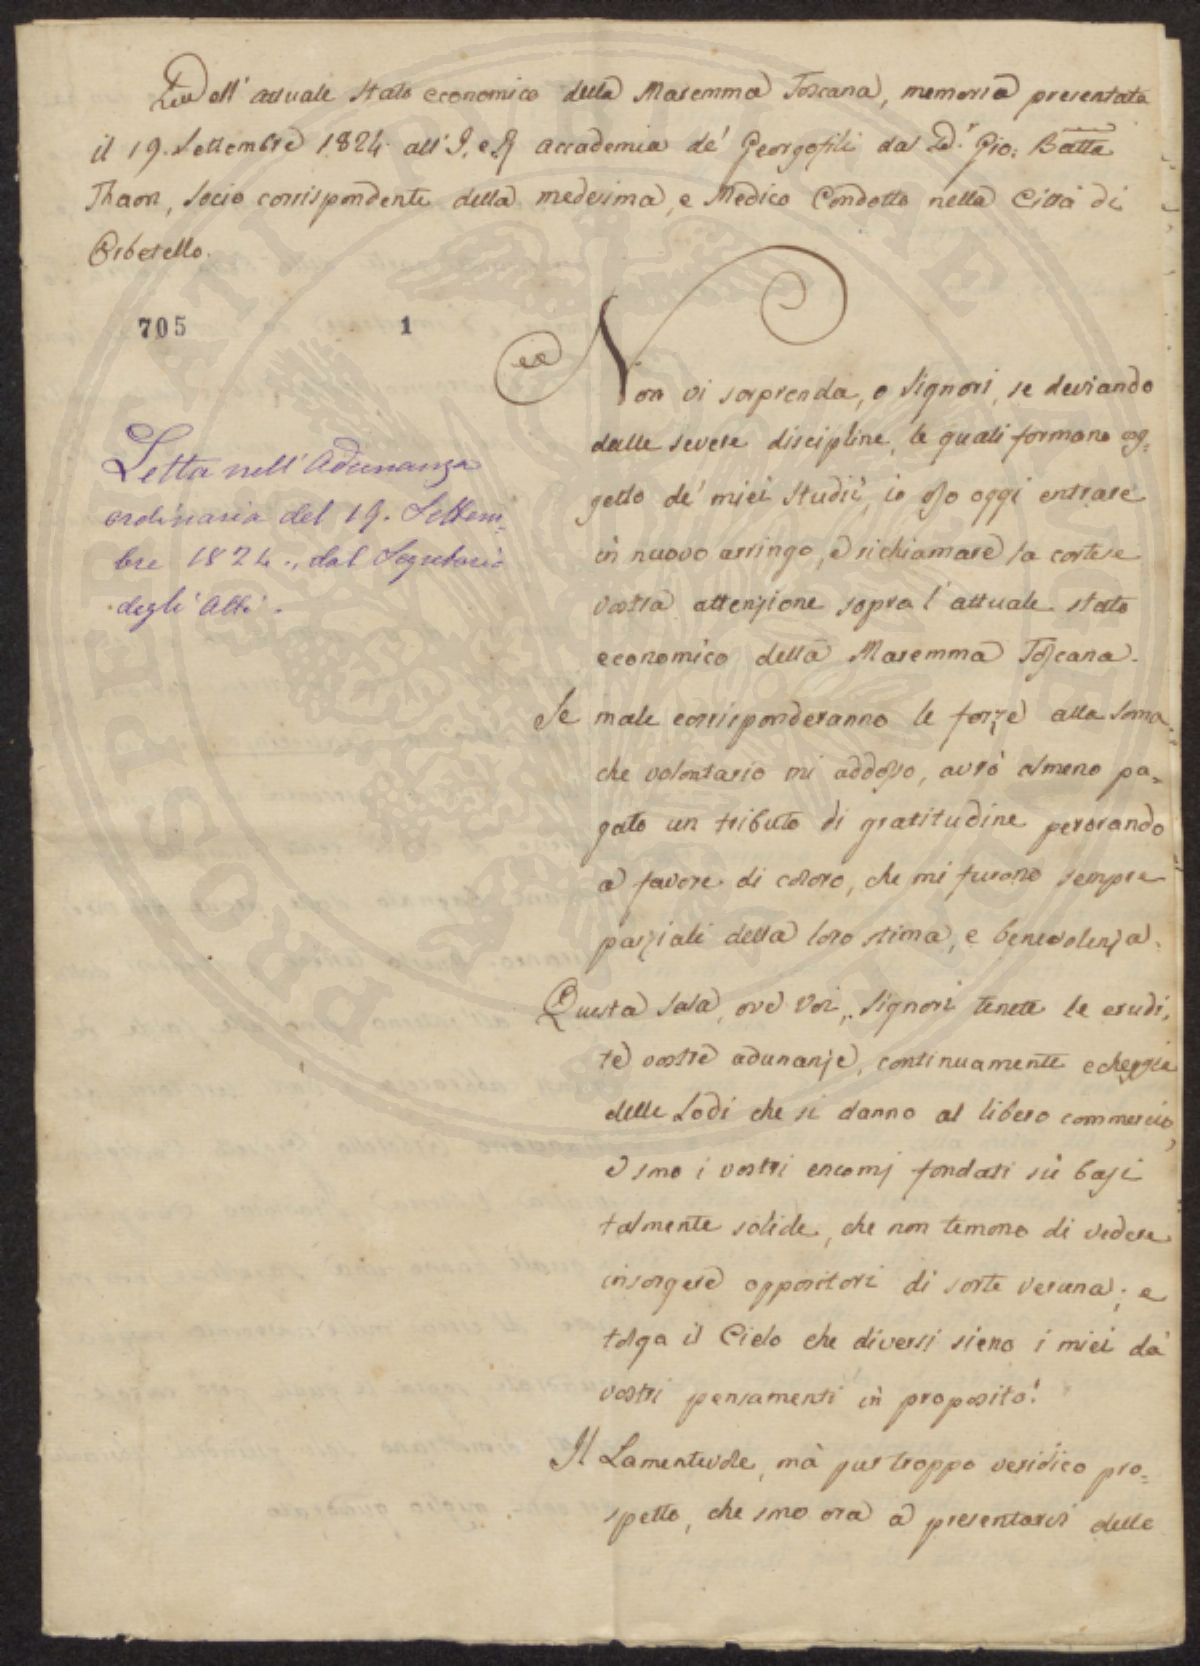 Dell' attuale stato economico della Maremma Toscana, memoria presentata
il 19. Settembre 1824 all' I. e R. accademia de' Georgofili dal D.r Gio: Batta
Thaon, socio corrispondente della medesima, e Medico Condotto nella Città di
Orbetello.
705 1
Non vi sorprenda, o Signori, se deviando
dalle severe discipline, le quali formano og-
getto de' miei studii, io oso oggi entrare
in nuovo arringo, e richiamare la cortese
vostra attenzione sopra l' attuale stato
economico della Maremma Toscana.
Letta nell' Adunanza
ordinaria del 19. Settem-
bre 1824., dal Segretario
degli Atti.
Se male corrisponderanno le forze alla soma
che volontario mi addosso, avrò almeno pa-
gato un tributo di gratitudine perorando
a favore di coloro, che mi furono sempre
parziali della loro stima, e benevolenza.
Questa sala, ove Voi, Signori tenete le erudi-
te vostre adunanze, continuamente echeggia
delle Lodi che si danno al libero commercio,
e sono i vostri encomj fondati sù basi
talmente solide, che non temono di vedere
insorgere oppositori di sorte veruna; e
tolga il Cielo che diversi sieno i miei da'
vostri pensamenti in proposito!
Il Lamentevole, mà pur troppo veridico pro-
spetto, che sono ora a presentarvi delle